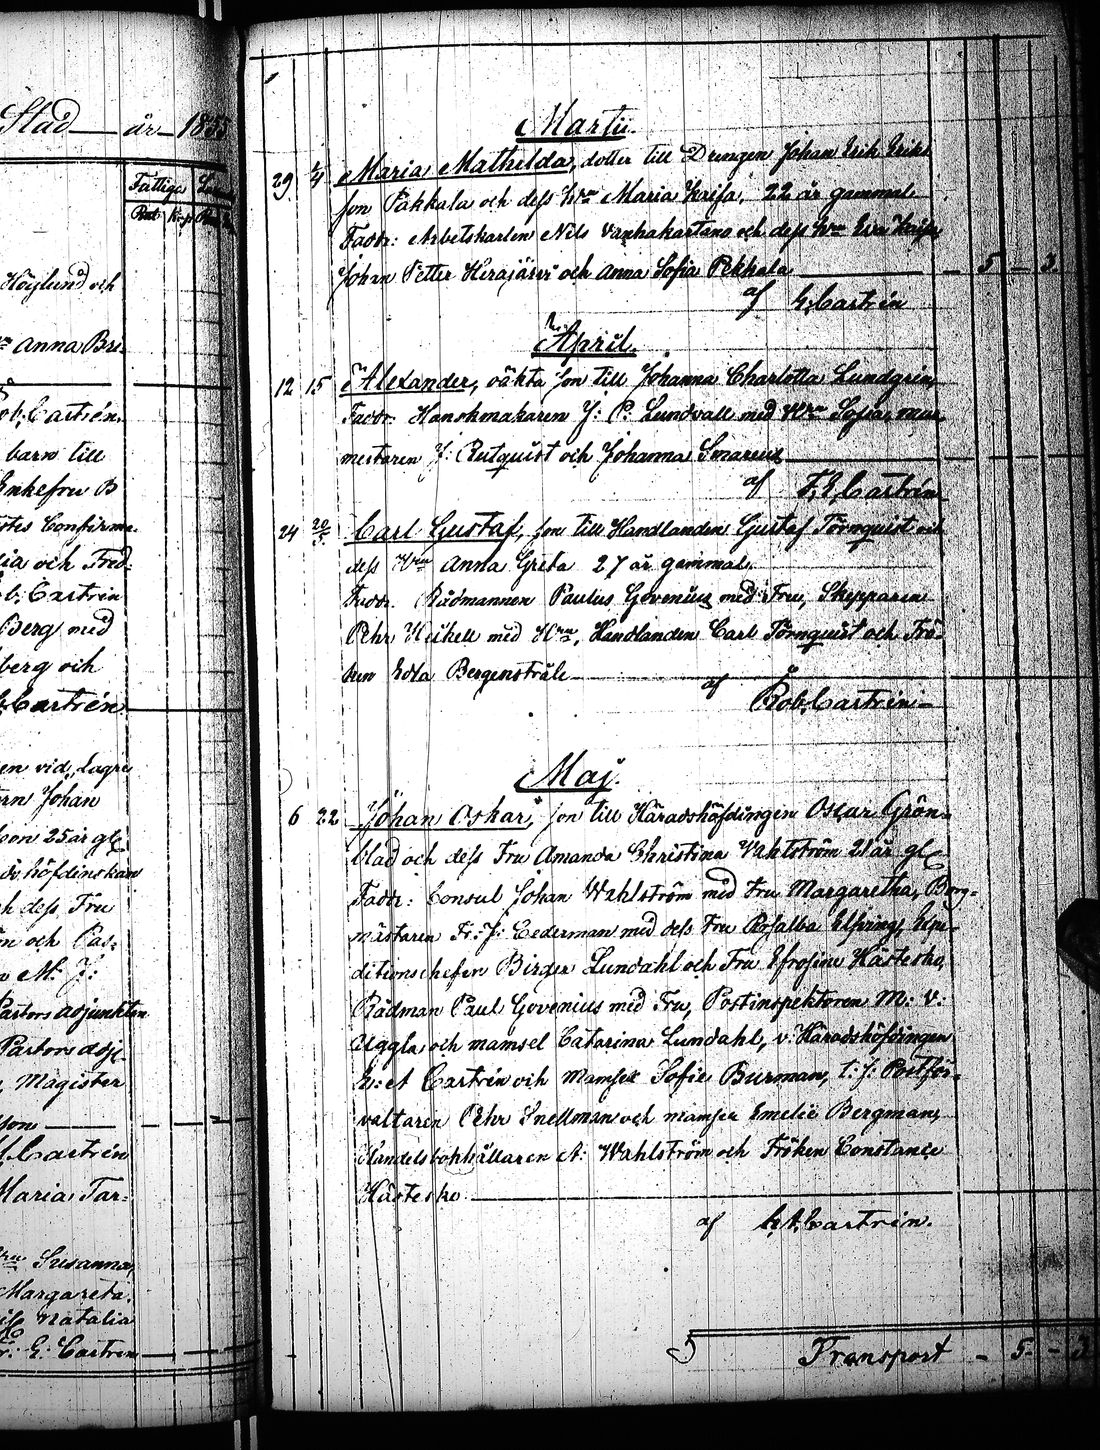 Stad — år 1855
Fattiga
Höglund och
Anna Bre-
Rob. Castrén.
barn till
Enkefru B
Confirma-
och Fred.
b. Castrén
Berg med
berg och
Castrén
en vid Lagre
Johan
son 25 år gl
höfdinskan
h dess Fru
n och Pas-
M. J:
Pastors adjunkten
Pastors adj.
Magister
son
Castrén
Maria Tar-
Susanna,
Margareta,
Natalia
G. Castrén
Martii.
29 4/4 Maria Mathilda, dotter till Drengen Johan Erik Eriks
son Pakkala och dess Hru Maria Kaisa, 22 år gammal.
Faddr: Arbetskarlen Nils Vanhakartano och dess Hru Eva Kaisa
Johan Petter Herajärvi och Anna Sofia Pekkala — 5 — 3.
af G. Castrén
April.
12 15 Alexander, oäkta son till Johanna Charlotta Lundgrin,
Faddr: Hanskmakaren J: P: Lundvall med Hru Sofia, mur
mestaren J: Rutquist och Johanna Snareus
af F. E. Castrén
24 20/5 Carl Gustaf, son till Handlanden Gustaf Törnquist och
dess Hru Anna Greta 27 år gammal.
Faddr. Rådmannen Paulus Govenius med Fru, Skepparen
Pehr Heikell med Hru, Handlanden Carl Törnquist och Frö-
ken Edla Bergenstråle
af Rob. Castrén
Maj.
6 22 Johan Oskar, son till Häradshöfdingen Oscar Grön-
blad och dess Fru Amanda Christina Wahlström 21 år gl
Faddr: Consul Johan Wahlström med Fru Margaretha, Berg-
mästaren Fr: J: Cederman med dess Fru Rosalba Elfving, Expe-
ditionschefen Birger Lundahl och Fru Efrosine Hästesko,
Rådman Paul Govenius med Fru, Postinspektoren M: v:
Uggla och mamsel Catarina Lundahl, v: Häradshöfdingen
Castrén och Mamsel Sofie Burman, t: f: Postför-
valtaren Pehr Snellman och mamsel Emelie Bergman,
Handelsbokhållaren A: Wahlström och Fröken Constance
Hästesko
af Castrén.
Transport — 5 — 3